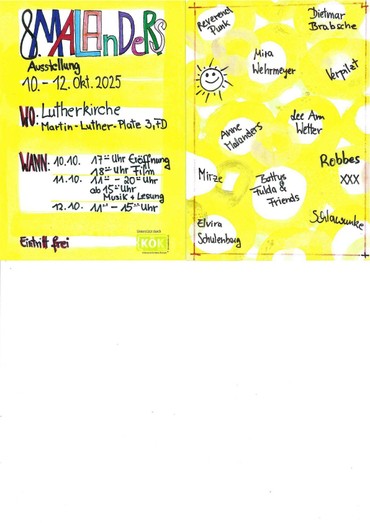 8. MALAnDERS
Ausstellung
10. – 12. Okt. 2025
WO: Lutherkirche
Martin-Luther-Platz 3, FD
WANN: 10.10. 17 Uhr Eröffnung
18 Uhr Film
11.10. 11 – 20 Uhr
ab 15 Uhr
Musik + Lesung
12.10. 11 – 15 Uhr
Eintritt frei
KÖK
Reverend
Punk
Dietmar
Brabsche
Mira
Wehrmeyer
Verpilzt
Anne
Malanders
Lee Am
Wetter
Robbes
XXX
Mirze
Fulda &
Friends
Elvira
Schulenburg
Schlawunke